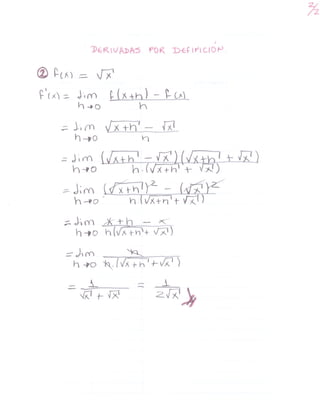 2/2
DERIVADAS POR DEFINICIÓN.
② f(x) = √x
f'(x) = lim h→0 (f(x+h) - f(x))/h
= lim h→0 (√x+h - √x)/h
= lim h→0 (√x+h - √x)(√x+h + √x)/h·(√x+h + √x)
= lim h→0 (√x+h)² - (√x)²/h(√x+h + √x)
= lim h→0 x+h - x/h(√x+h + √x)
= lim h→0 h/h·(√x+h + √x)
= 1/√x + √x = 1/2√x